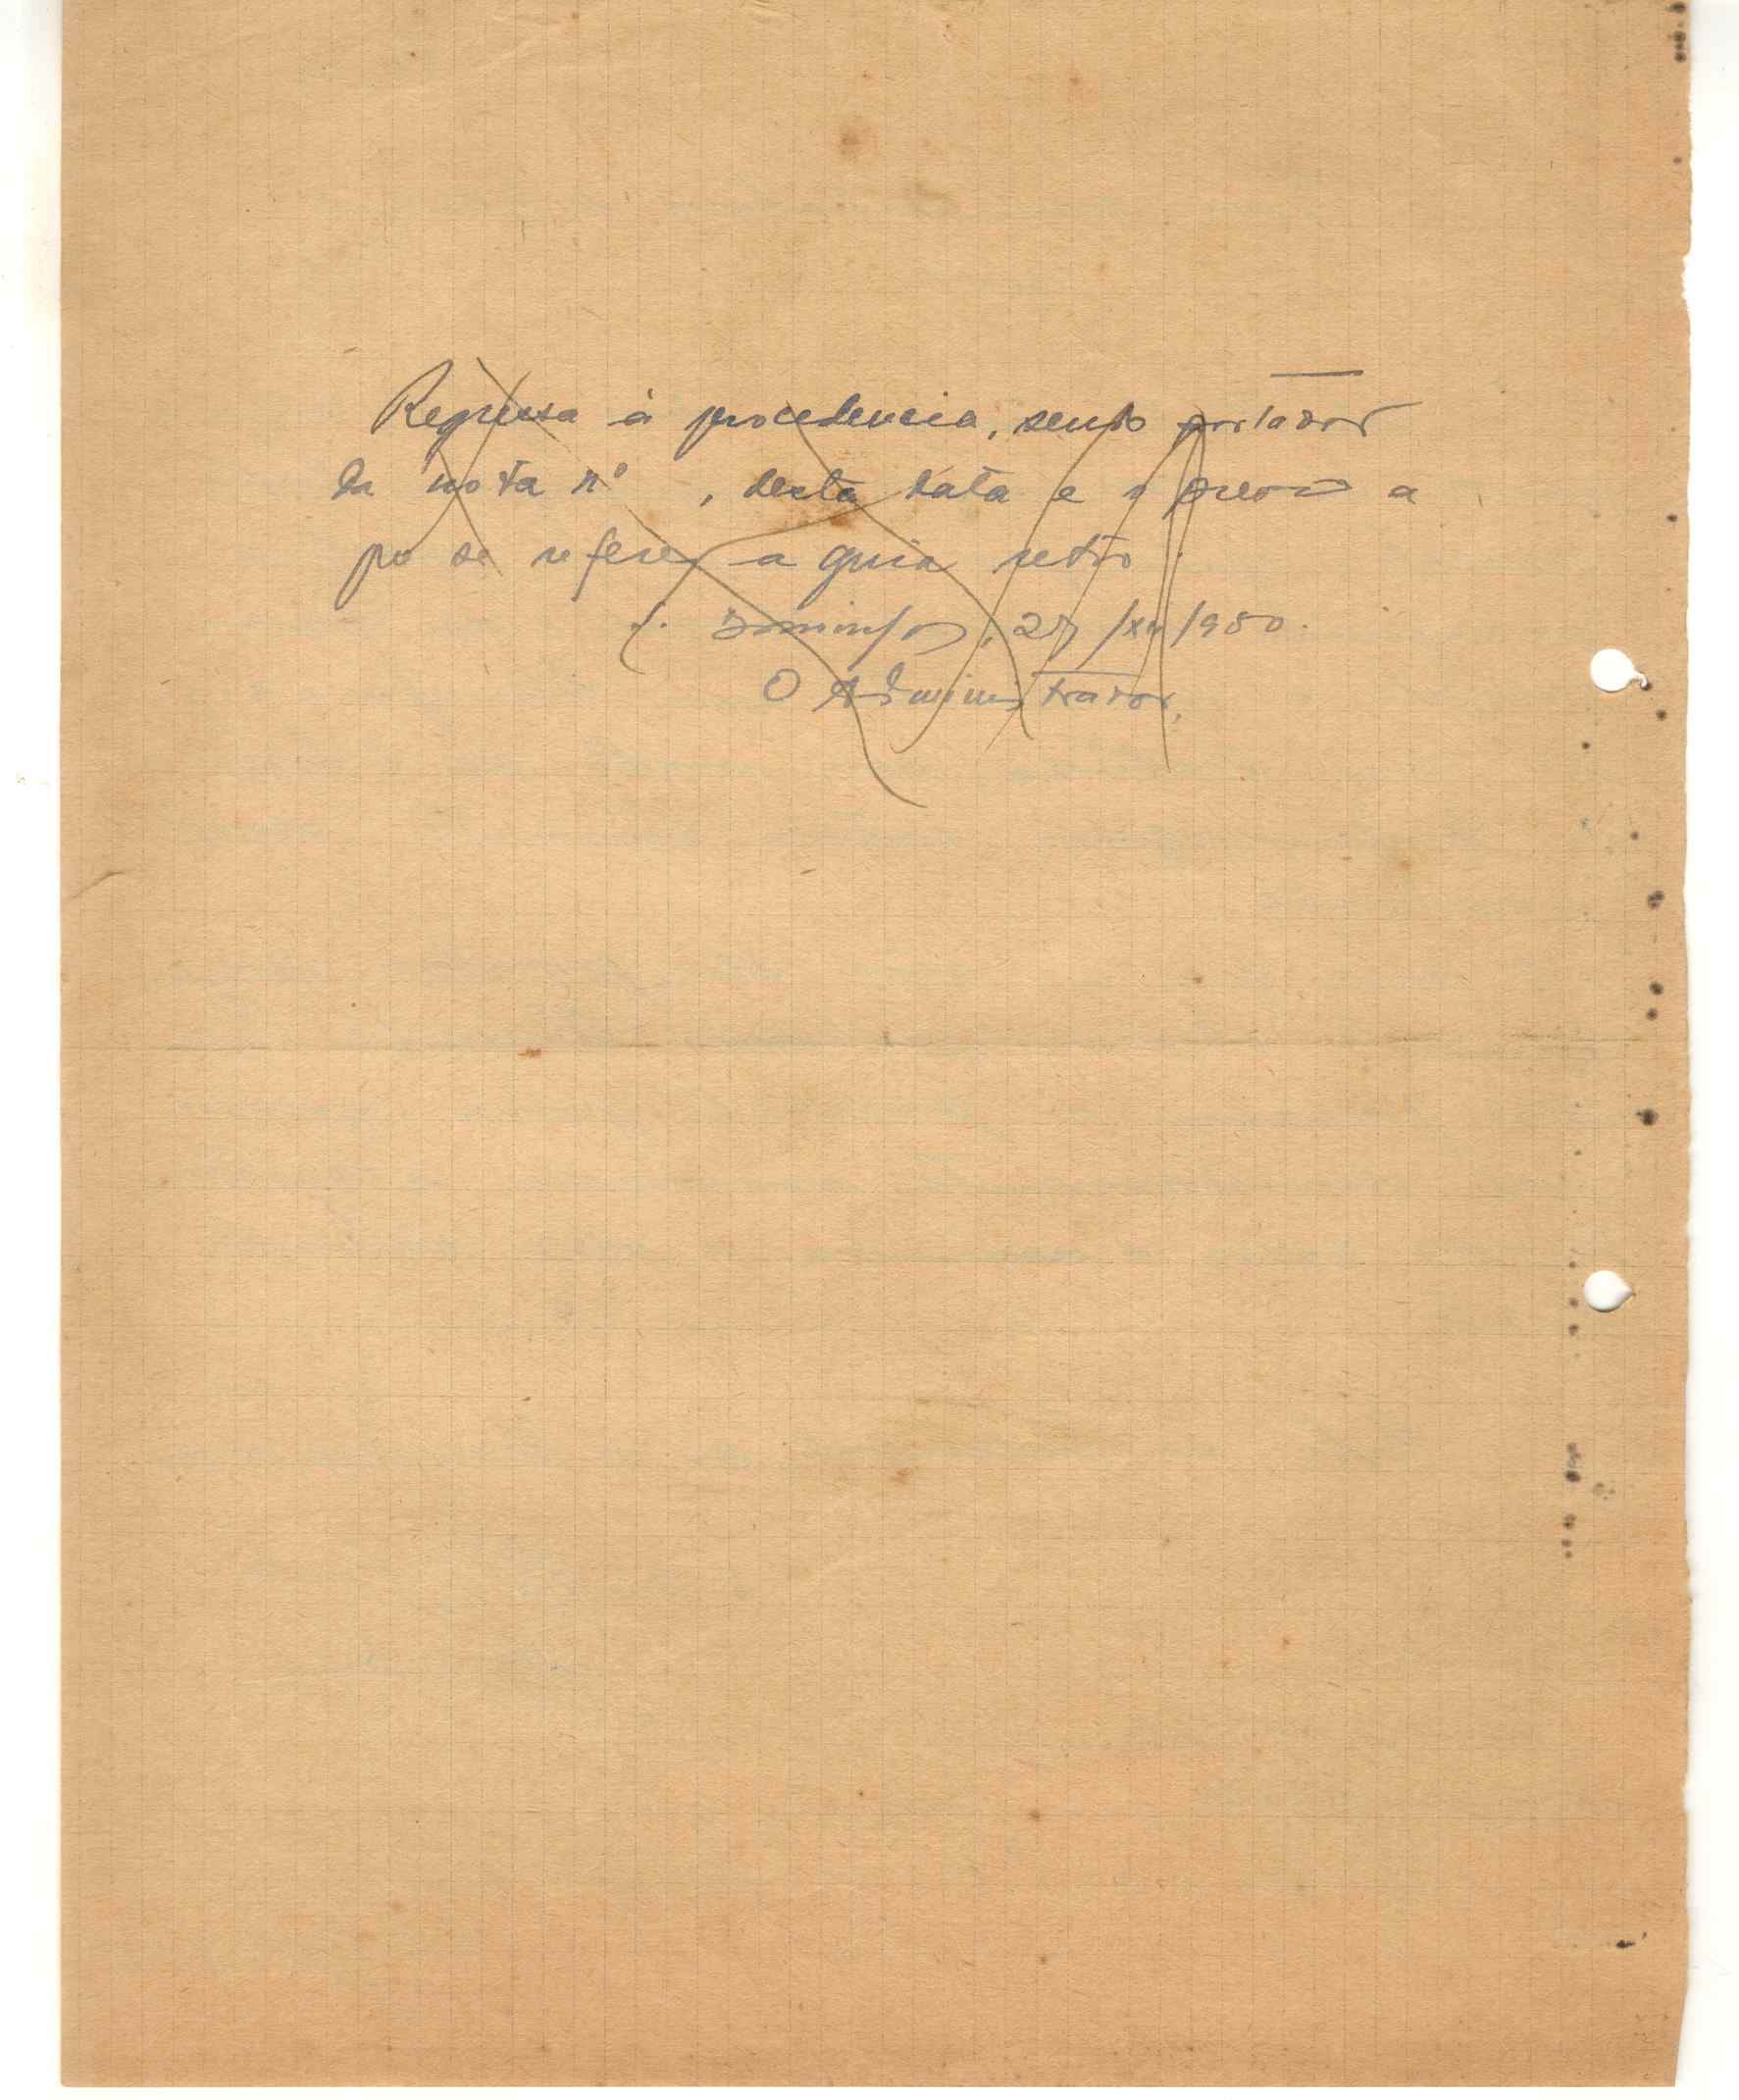 Regressa à procedencia, sendo portador
da nota nº , desta data e o preso a
que se refere a guia retro.
S. Domingos, 27/XII/1950.
O Administrador,